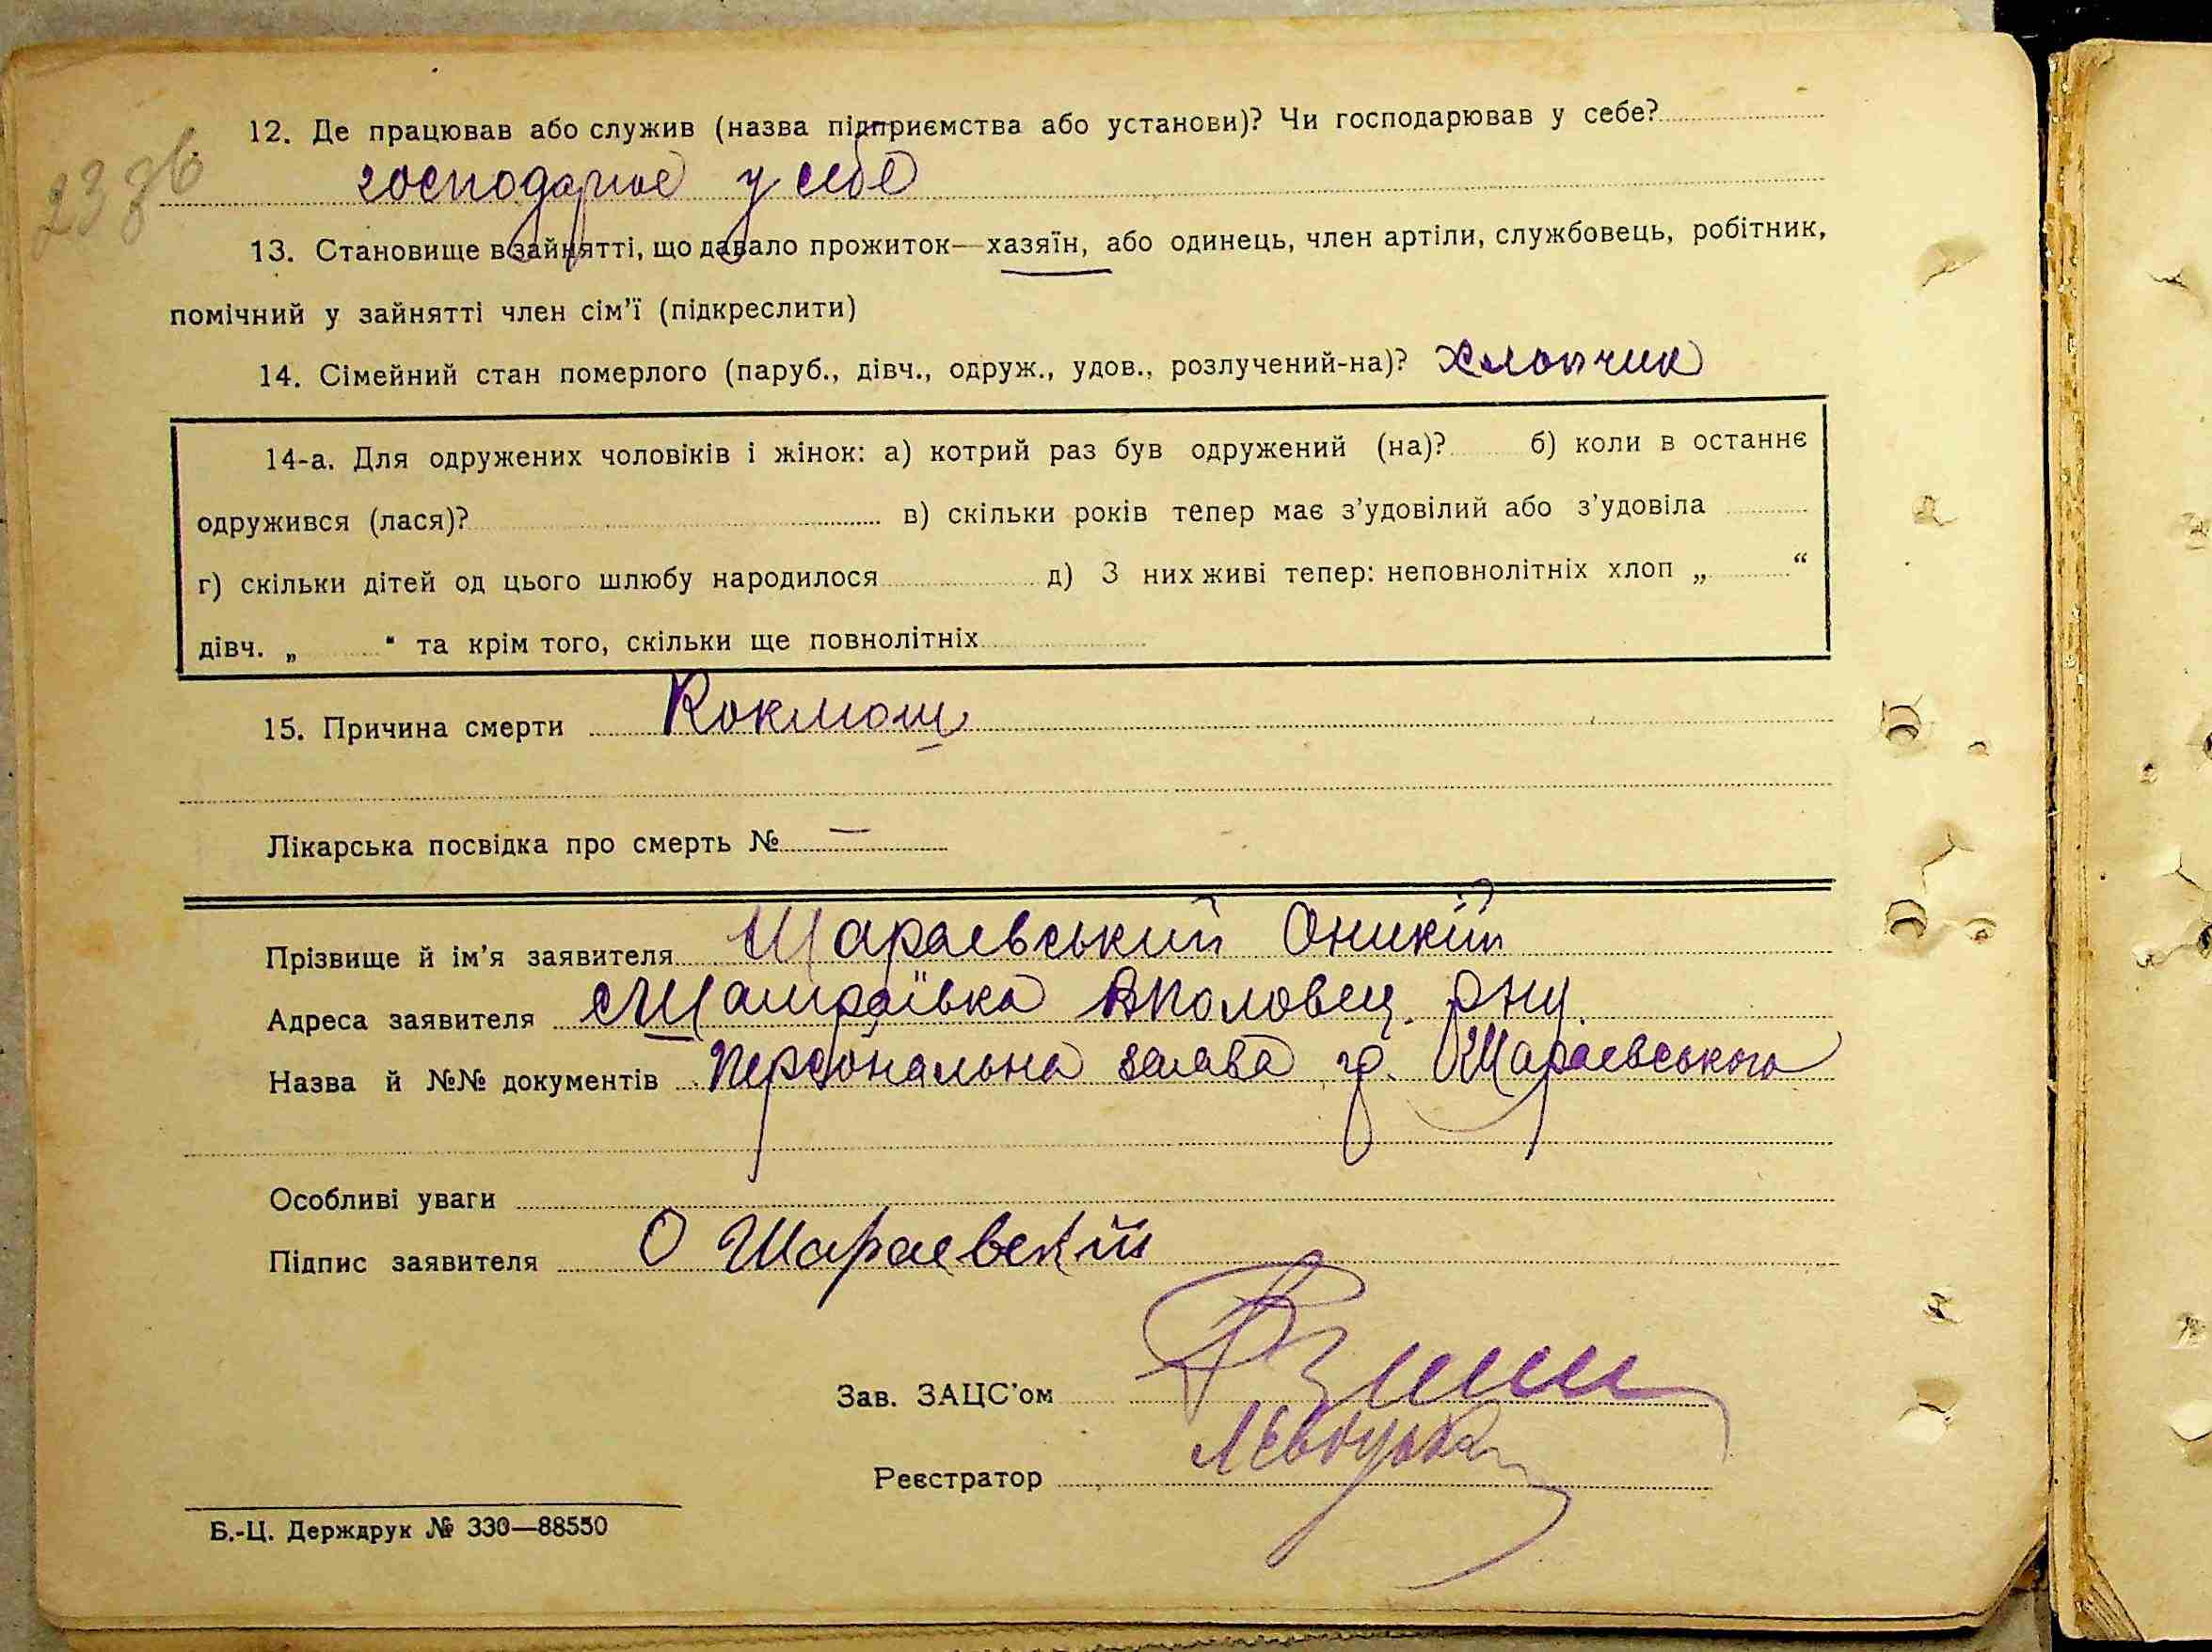 12. Де працював або служив (назва підприємства або установи)? Чи господарював у себе?
господарює у себе
13. Становище в зайнятті, що давало прожиток—хазяїн, або одинець, член артіли, службовець, робітник,
помічний у зайнятті член сім'ї (підкреслити)
14. Сімейний стан померлого (паруб., дівч., одруж., удов., розлучений-на)? хлопчик
14-а. Для одружених чоловіків і жінок: а) котрий раз був одружений (на)? б) коли в останнє
одружився (лася)? в) скільки років тепер має з'удовілий або з'удовіла
г) скільки дітей од цього шлюбу народилося д) З них живі тепер: неповнолітніх хлоп „ “
дівч. „ “ та крім того, скільки ще повнолітніх
15. Причина смерти Коклюш
Лікарська посвідка про смерть № —
Прізвище й ім'я заявителя Шараевський Оникій
Адреса заявителя с Шамраївка
Назва й №№ документів Персональна заява гр. Шараевського
Особливі уваги
Підпис заявителя О Шараевскій
Зав. ЗАЦС'ом
Реєстратор
Б.-Ц. Держдрук № 330—88550